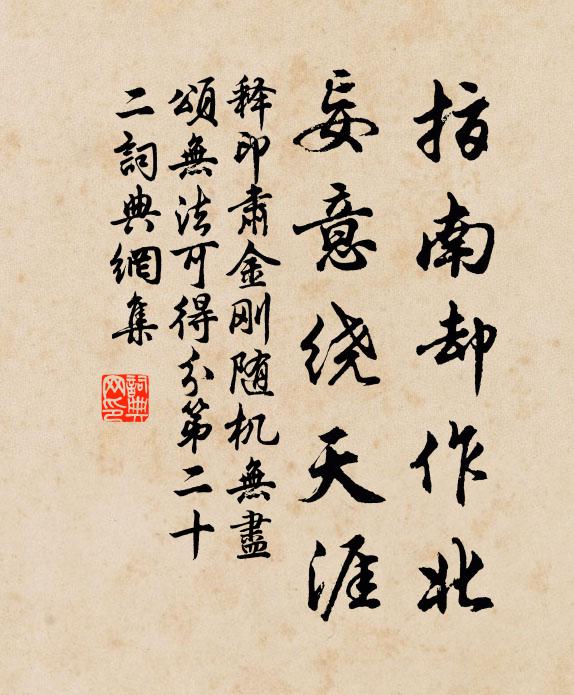 指南却作北
妄意绕天涯
释印肃金刚随机無盡
頌無法可得分第二十
二詞典網集
詞典
网印